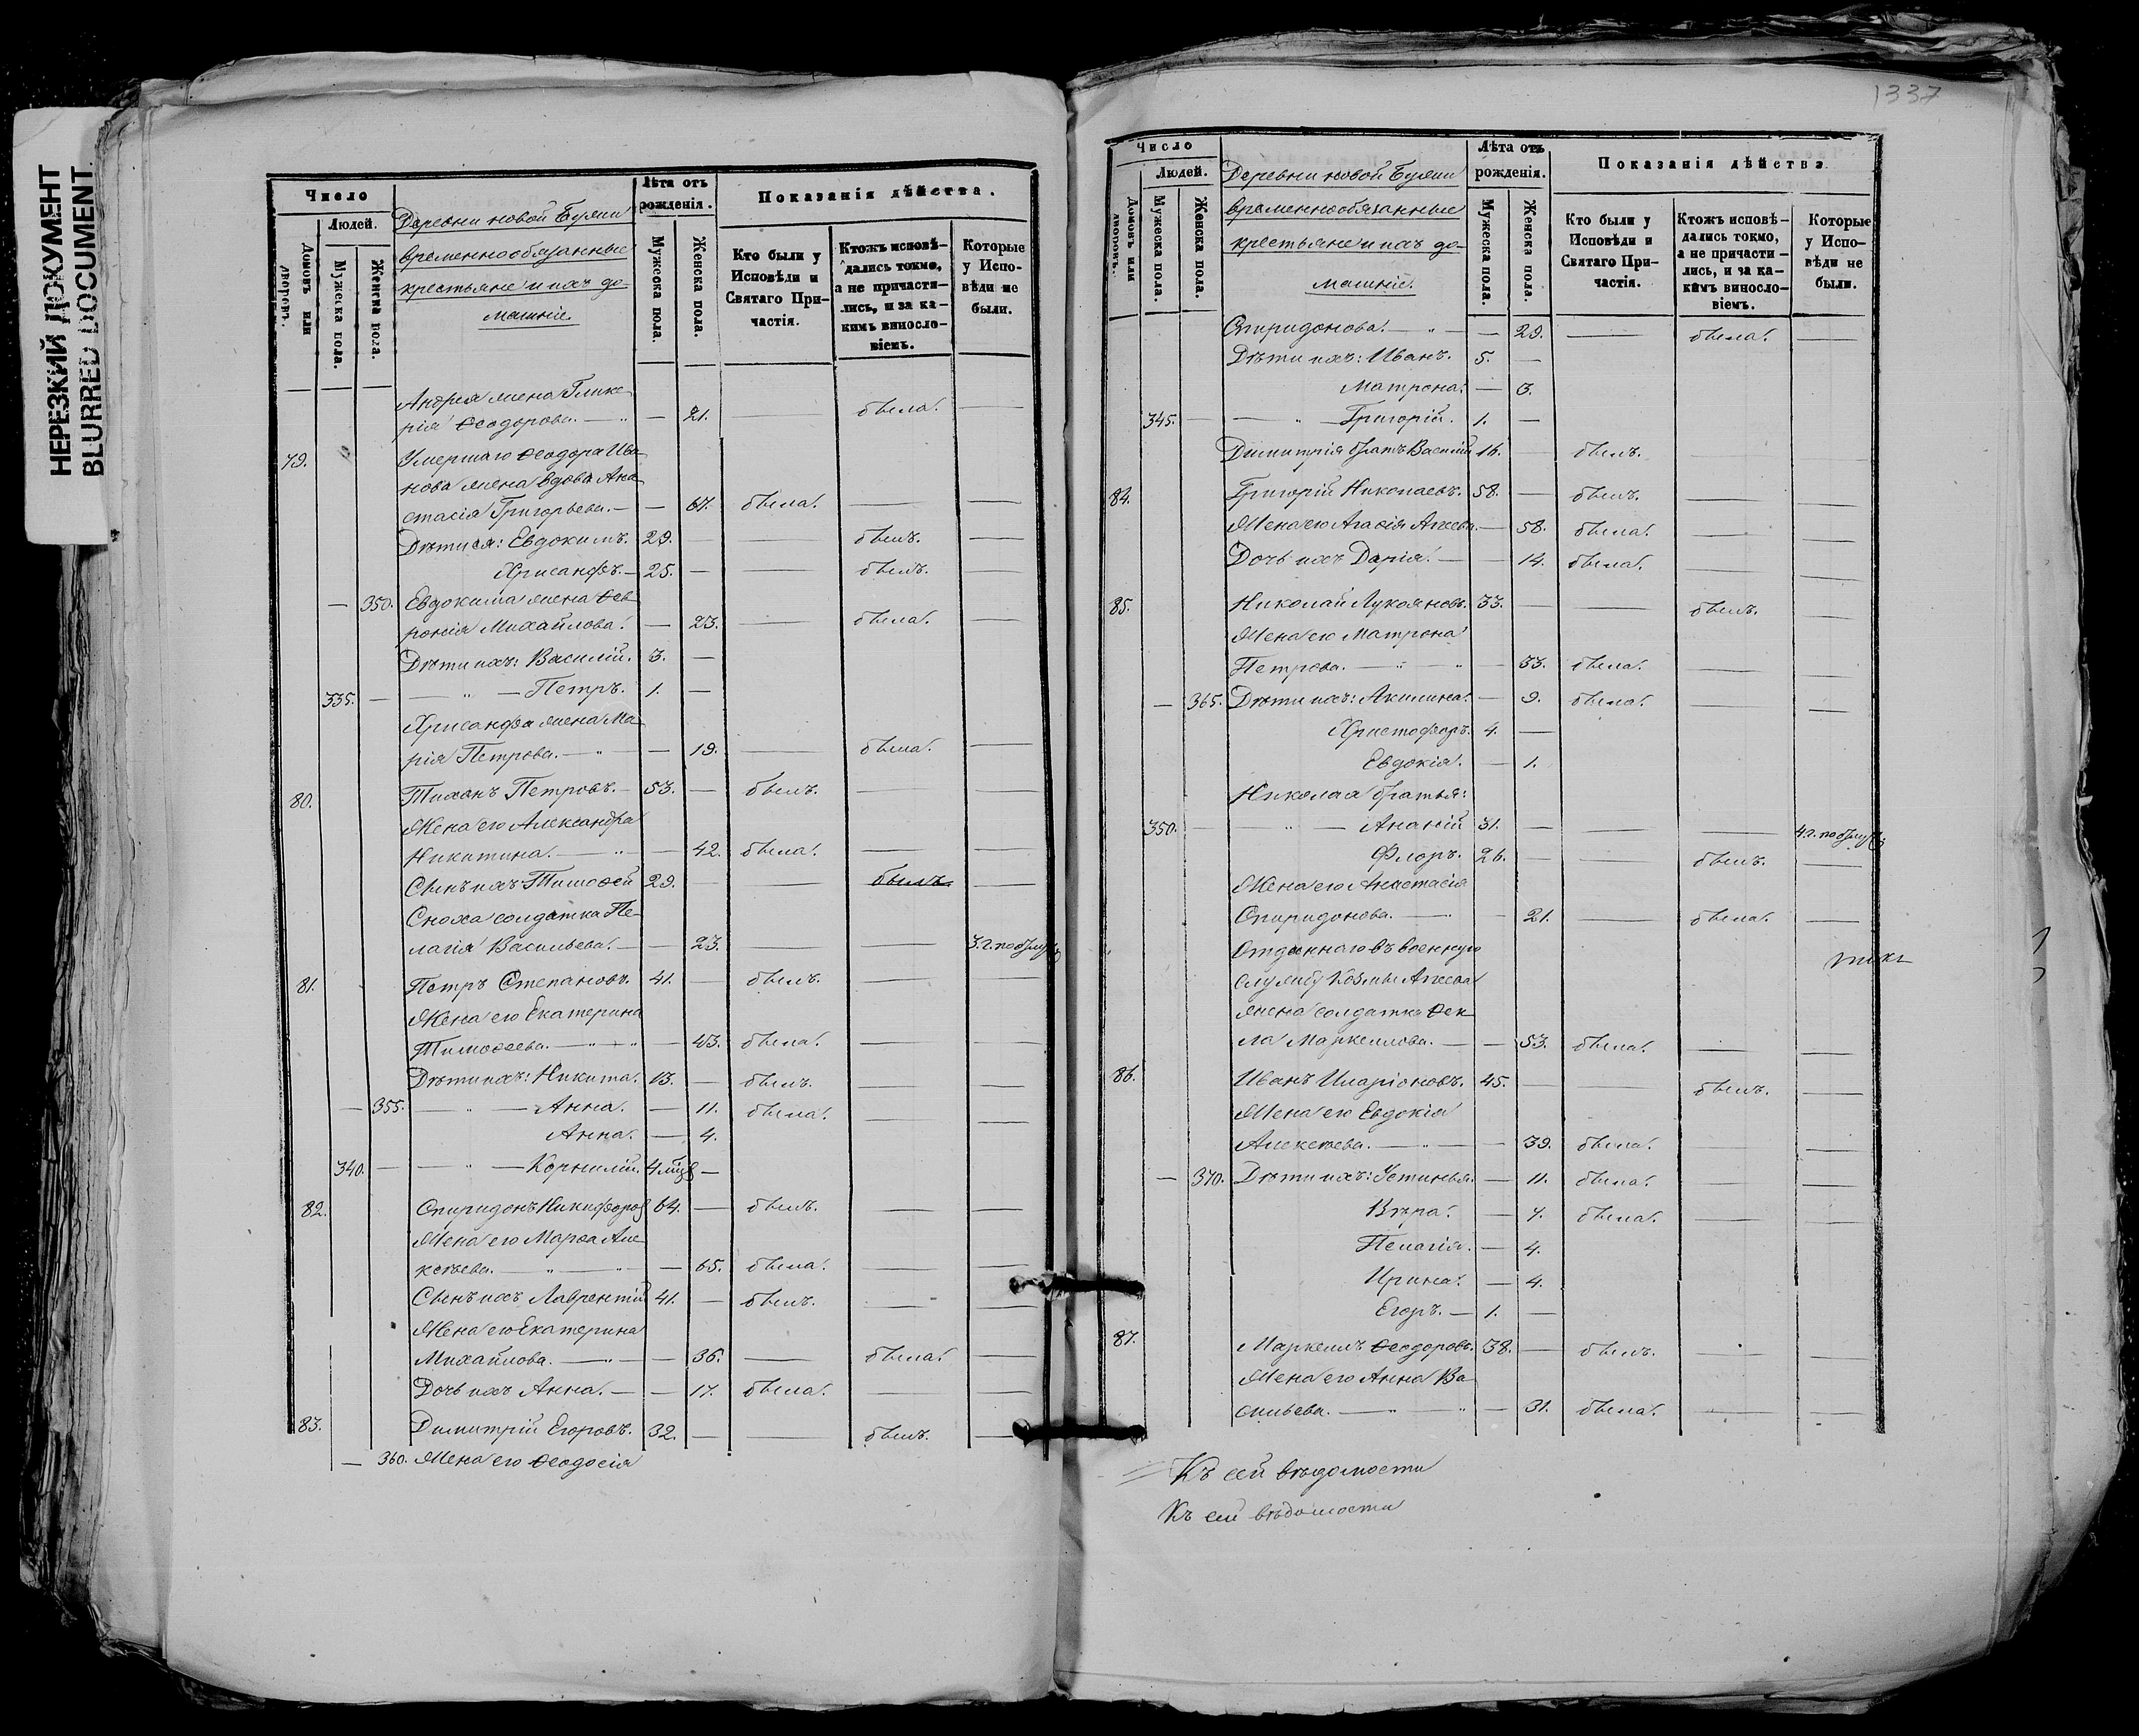 НЕРЕЗКИЙ ДОКУМЕНТ
BLURRED DOCUMENT.
Число
Людей.
Домовъ или дворовъ.
Мужеска пола.
Женска пола.
Деревни новой
временнообязанные
крестьяне и ихъ до-
машніе.
Лѣта отъ рожденія.
Мужеска пола.
Женска пола.
Показанія дѣйства.
Кто были у Исповѣди и Святаго При-частія.
Ктожъ исповѣ-дались токмо, а не причасти-лись, и за ка-кимъ виносло-віемъ.
Которые у Испо-вѣди не были.
Андрея жена Глике-
рія Ѳеодорова. — 21. — была. —
79. Умершаго Ѳеодора Ива-
нова жена вдова Ана-
стасія Григорьева. — — 67. была. — —
Дѣти ея: Евдокимъ. 29. — — былъ. —
Хрисанфъ. — 25. — — былъ. —
— 350. Евдокима жена Фев-
ронія Михайлова. — 23. — была. —
Дѣти ихъ: Василій. 3. —
335. — — " — Петръ. 1. —
Хрисанфа жена Ма-
рія Петрова. — " — — 19. — была. —
80. Тихонъ Петровъ. — 53. — былъ. —
Жена его Александра
Никитина. — " — 42. была. — —
Сынъ ихъ Тимоѳей 29. — — былъ —
Сноха солдатка Пе-
лагія Васильева. — — 23. — — 3. г. по
81. Петръ Степановъ. 41. — былъ. —
Жена его Екатерина
Тимоѳеева. — " — " — 43. была. — —
Дѣти ихъ: Никита. 13. — былъ. — —
— 355. — " — Анна. — 11. была. — —
Анна. — 4.
340. — — " — Корнилій. 4 —
82. Спиридонъ Никифоровъ 64. — былъ. — —
Жена его Марѳа Але-
ксѣева. — " — " — 65. была. — —
Сынъ ихъ Лаврентій 41. — былъ. — —
Жена его Екатерина
Михайлова. — " — — 36. — была. —
Дочь ихъ Анна. — — 17. была. — —
83. Димитрій Егоровъ. 32. — — былъ. —
— 360. Жена его Ѳеодосія
1337
Число
Людей.
Домовъ или дворовъ.
Мужеска пола.
Женска пола.
Деревни новой
временнообязанные
крестьяне и ихъ до-
машніе.
Лѣта отъ рожденія.
Мужеска пола.
Женска пола.
Показанія дѣйства
Кто были у Исповѣди и Святаго При-частія.
Ктожъ исповѣ-дались токмо, а не причасти-лись, и за ка-кимъ виносло-віемъ.
Которые у Испо-вѣди не были.
Спиридонова. — " — — 29. — была. —
Дѣти ихъ: Иванъ. 5. —
Матрона. — 3.
345. — — " — Григорій. 1. —
Димитрія братъ Василій 16. — былъ. — —
84. Григорій Николаевъ. 58. — былъ. — —
Жена его Агаѳія — 58. была. — —
Дочь ихъ Дарія. — — 14. была. — —
85. Николай Лукояновъ. 33. — — былъ. —
Жена его Матрона
Петрова. — " — " — 33. была. — —
— 365. Дѣти ихъ: Акилина. — 9. была. — —
Христофоръ. 4. —
Евдокія. — 1.
Николая братья:
350. — — " — Ананій 31. — — — 4 г. по
Флоръ. 26. — — былъ. —
Жена его Анастасія
Спиридонова. — " — 21. — была. —
Отданнаго въ военную
службу Козьмы
жена солдатка Ѳек-
ла Маркеллова. — — 53. была. — —
86. Иванъ Иларіоновъ. 45. — — былъ. —
Жена его Евдокія
Алексѣева. — " — — 39. была. — —
— 370. Дѣти ихъ: Устинья. — 11. была. — —
Вѣра. — 7. была. — —
Пелагія. — 4.
Ирина. — 4.
Егоръ. — 1. —
87. Маркеллъ Ѳеодоровъ. 38. — былъ. — —
Жена его Анна Ва-
сильева. — " — " — 31. была. — —
Къ сей вѣдомости
Къ сей вѣдомости